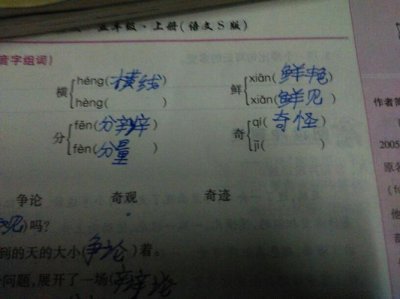 五年级·上册(语文S版)
字组词)
横 héng(横线) 鲜 xiān(鲜艳)
hèng( ) xiǎn(鲜见)
分 fēn(分辨) 奇 qí(奇怪)
fèn(分量) jī( )
作者简
2005
原名
争论 奇观 奇迹
)吗?
到的天的大小(争论)着。
问题,展开了一场(
他